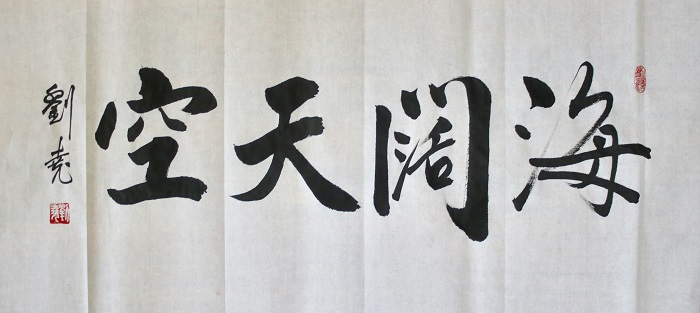 海阔天空
劉堯